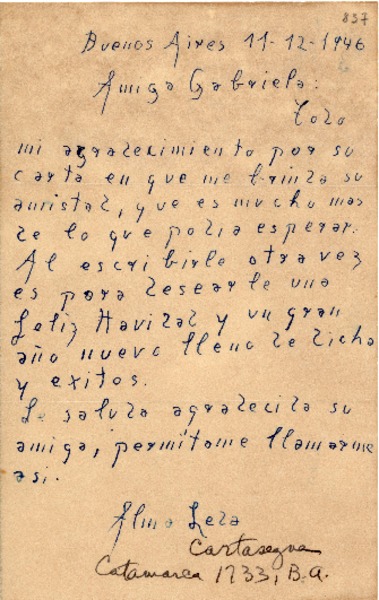 837
Buenos Aires 11-12-1946
Amiga Gabriela:
Todo
mi agradecimiento por su
carta en que me brinda su
amistad, que es mucho mas
de lo que podia esperar.
Al escribirle otra vez
es para desearle una
Feliz Navidad y un gran
año nuevo lleno de dicha
y exitos.
Le saluda agradecida su
amiga, permítame llamarme
asi.
Alma Leda
Cartasegna
Catamarca 1733, B.A.